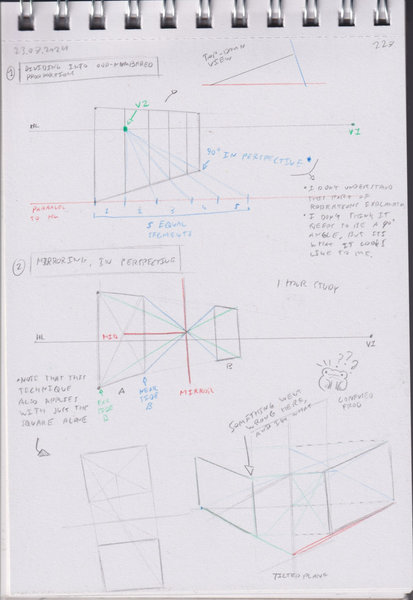 23.07.2024
227
① DIVIDING INTO ODD-NUMBERED
PROPORTIONS
TOP-DOWN
VIEW
V2
HL
V1
90° IN PERSPECTIVE
PARALLEL
TO HL
1 2 3 4 5
5 EQUAL
SEGMENTS
• I DON'T UNDERSTAND
THIS PART OF
ROBERTSON'S EXPLANATION
• I DON'T THINK IT
NEEDS TO BE A 90°
ANGLE, BUT IT'S
WHAT IT LOOKS
LIKE TO ME.
② MIRRORING, IN PERSPECTIVE
1 HOUR STUDY
HL
MID
V1
B
MIRROR
A
FAR
SIDE
NEAR
SIDE
B
• NOTE THAT THIS
TECHNIQUE
ALSO APPLIES
WITH JUST THE
SQUARE ALONE
???
CONFUSED
FROG
SOMETHING WENT
WRONG HERE,
TILTED PLANE